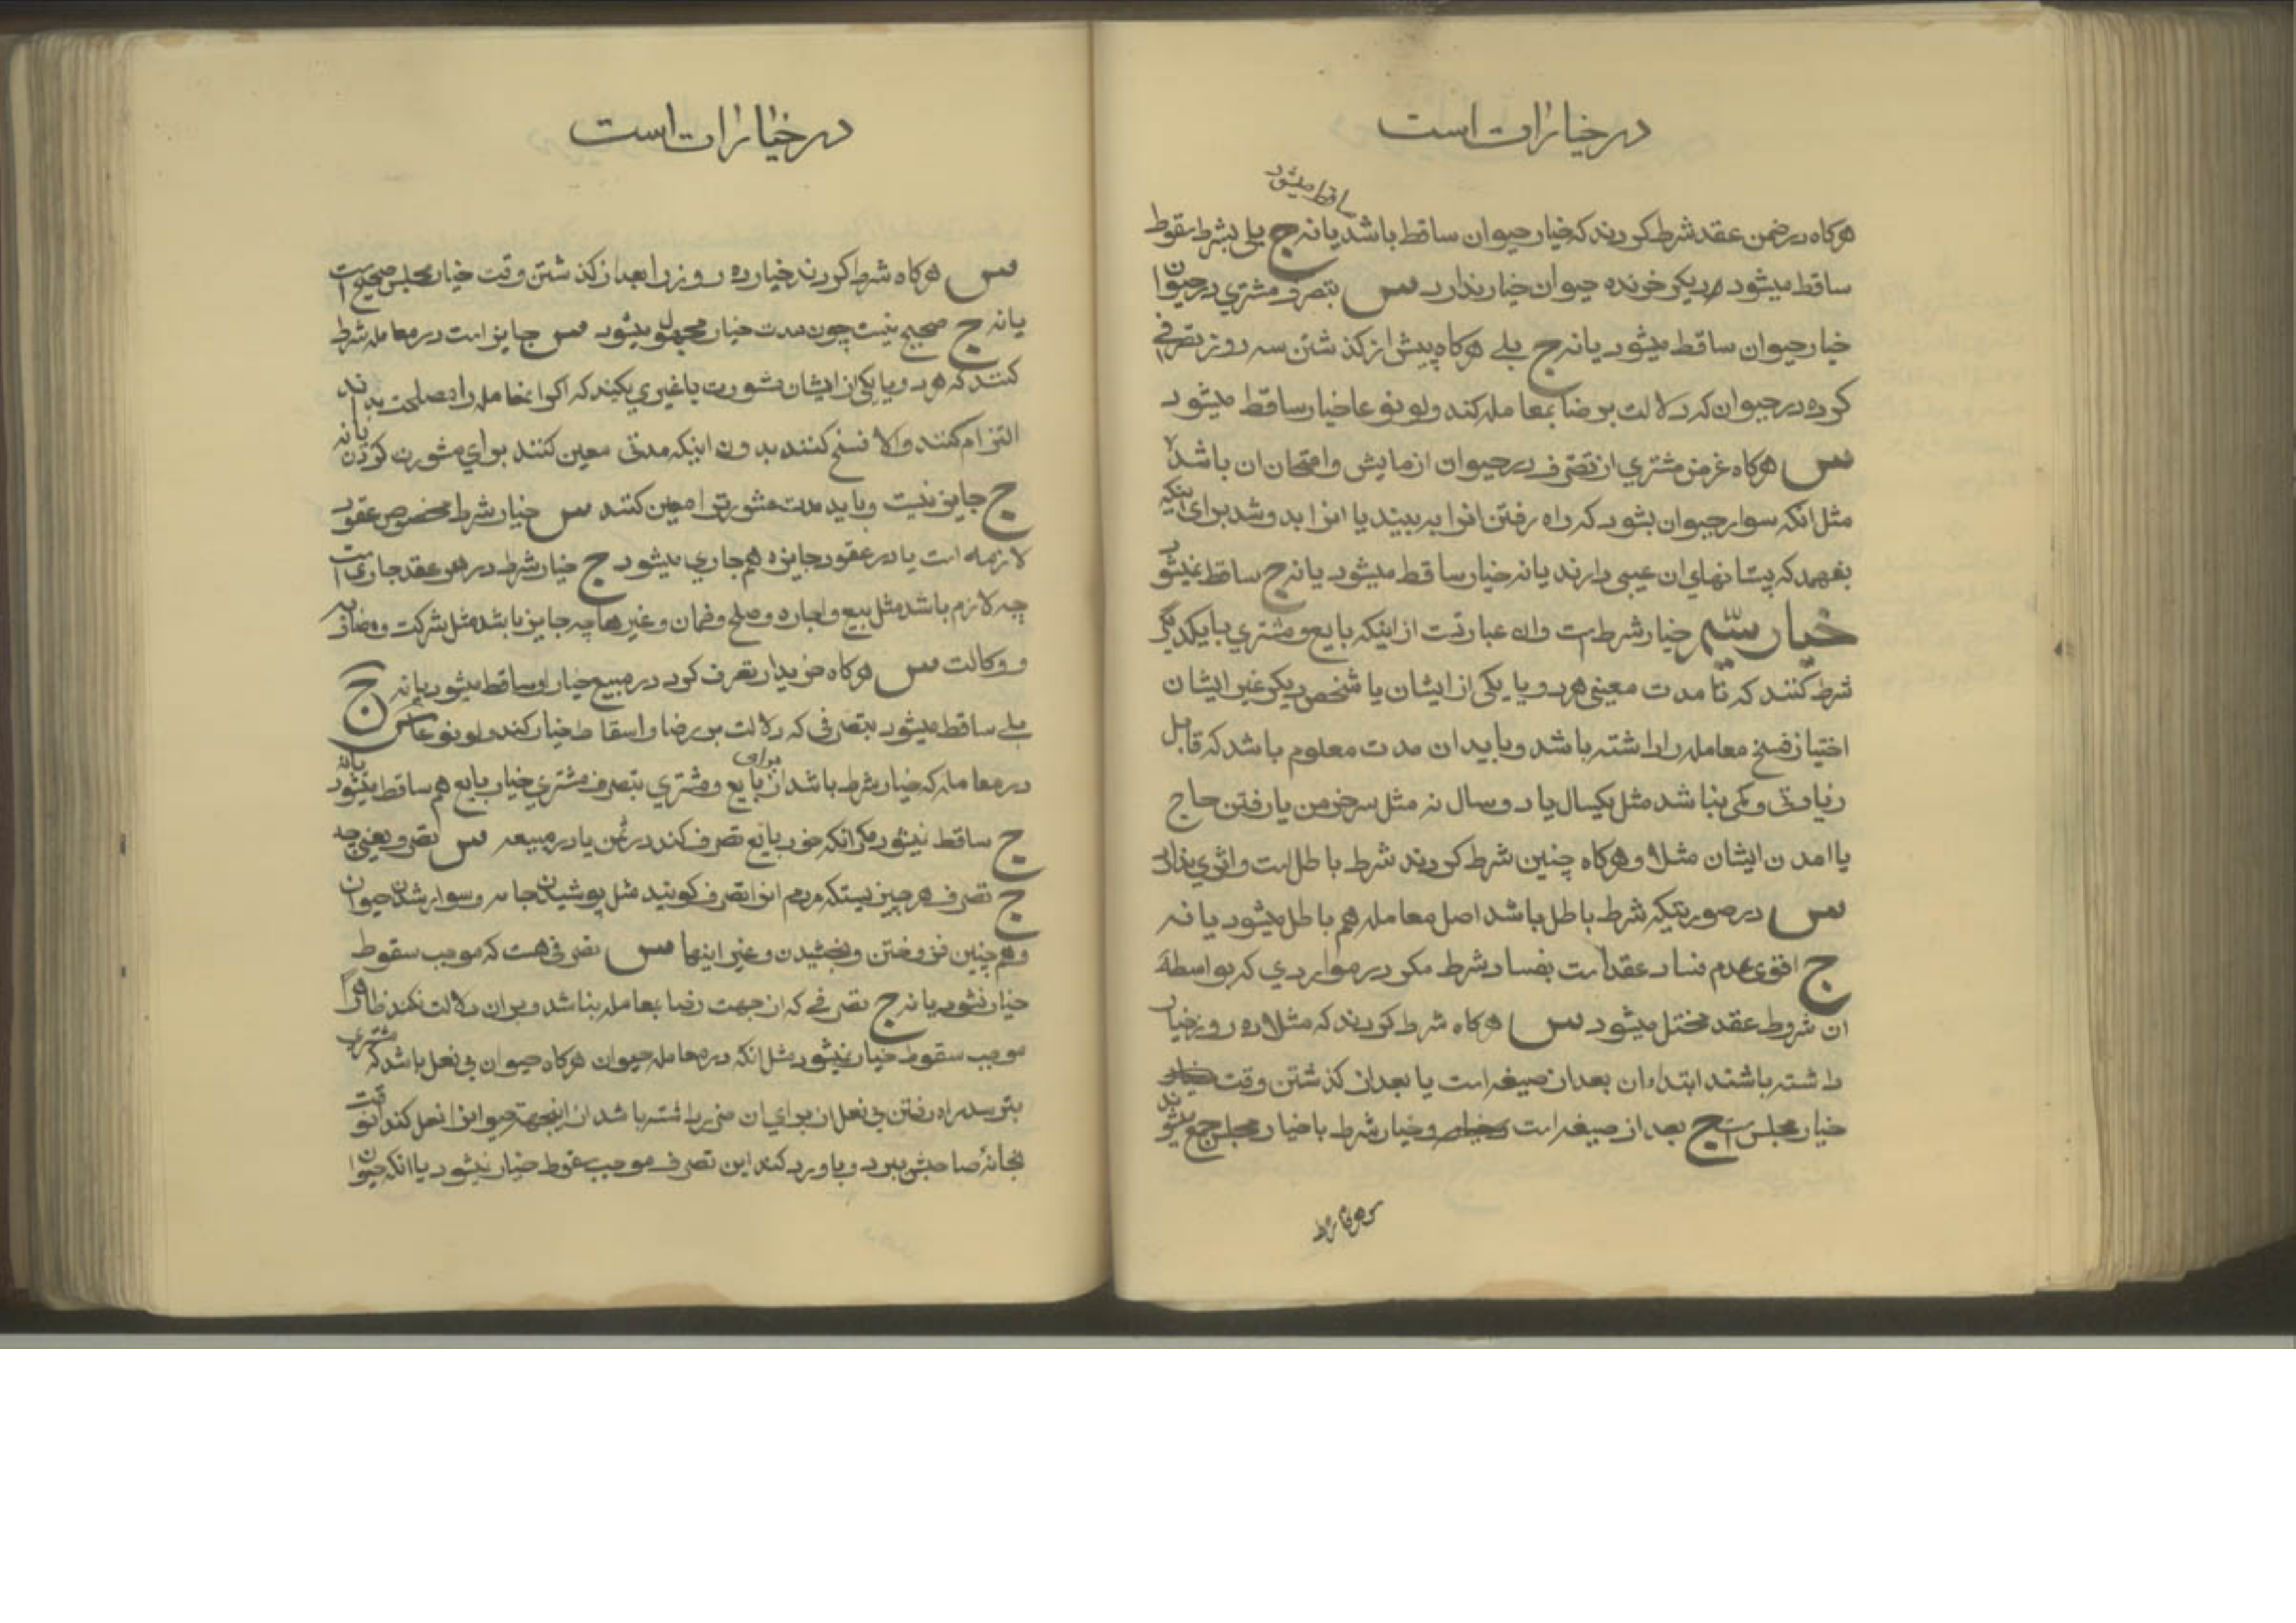 در خیارات است
ساقط میشود
هرکاه در ضمن عقد شرط کردند که خیار حیوان ساقط باشد یا نه ج بلی بشرط سقوط
ساقط میشود دیکر خرنده حیوان خیار ندارد س بتصرف مشتري در حیوان
خیار حیوان ساقط میشود یا نه ج بلے هرکاه پیش از کذشتن سه روز تصرفی
کرده در حیوان که دلالت بر رضا بمعامله کند ولو نوعا خیار ساقط میشود
س هرکاه غرض مشتري از تصرف در حیوان ازمایش و امتحان ان باشد
مثل انکه سوار حیوان بشود که راه رفتن انرا به بیند یا انرا بدوشد برای اینکه
بفهمد که پستانهاي ان عیبی دارند یا نه خیار ساقط میشود یا نه ج ساقط نمیشود
خیار سیم خیار شرط است وان عبارتست از اینکه بایع و مشتري با یکدیگر
شرط کنند که تا مدت معینی هر دو یا یکی از ایشان یا شخص دیکر غیر ایشان
اختیار فسخ معامله را داشته باشد و باید ان مدت معلوم باشد که قابل
زیادتی و کمی نباشد مثل یکسال یا دو سال نه مثل سر خرمن یا رفتن حاج
یا امدن ایشان مثلا و هرکاه چنین شرط کردند شرط باطل است واثري ندارد
س در صورتیکه شرط باطل باشد اصل معامله هم باطل میشود یا نه
ج اقوی عدم فساد عقد است بفساد شرط مکر در مواردي که بواسطهٔ
ان شروط عقد مختل میشود س هرکاه شرط کردند که مثلا ده روز خیار
داشته باشند ابتداء ان بعد از صیغه است یا بعد از کذشتن وقت
خیار مجلس است ج بعد از صیغه است و خیار شرط با خیار مجلس جمع میشوند
س هرکاه شرط
در خیارات است
س هرکاه شرط کردند خیار ده روز را بعد از کذشتن وقت خیار مجلس صحیح است
یا نه ج صحیح نیست چون مدت خیار مجهول میشود س جایز است در معامله شرط
کنند که هر دو یا یکی از ایشان مشورت با غیري بکنید که اکر اینمعامله را مصلحت بدانند
التزام کنند والا فسخ کنند بدون اینکه مدتی معین کنند براي مشورت کردن یا نه
ج جایز نیست و باید مدت مشورت را معین کنند س خیار شرط مخصوص عقود
لازمه است یا در عقود جایزه هم جاري میشود ج خیار شرط در هر عقد جاری است
چه لازم باشد مثل بیع و اجاره و صلح و ضمان و غیرها چه جایز باشد مثل شرکت و مضاربه
و وکالت س هرکاه خریدار تصرف کرد در مبیع خیار او ساقط میشود یا نه ج
بلے ساقط میشود بتصرفی که دلالت بر رضا و اسقاط خیار کند ولو نوعا س
در معامله که خیار شرط باشد از برای بایع و مشتري بتصرف مشتري خیار بایع هم ساقط میشود یا نه
ج ساقط نمیشود مکر انکه خود بایع تصرف کند در ثمن یا در مبیعه س تصرف یعنی چه
ج تصرف هر چیزیستکه مردم انرا تصرف کویند مثل پوشیدن جامه و سوار شدن حیوان
و هم چنین فروختن و بخشیدن و غیر اینها س تصرفی هست که موجب سقوط
خیار نشود یا نه ج تصرفے که از جهت رضا بمعامله نباشد و بر ان دلالت نکند ظاهراً
موجب سقوط خیار نمیشود مثل انکه در معامله حیوان هرکاه حیوان بی نعل باشد که مشتری
بترسد راه رفتن بی نعل از براي ان ضرر داشته باشد از اینجهة حیوانرا نعل کند انوقت
بخانهٔ صاحبش ببرد و یا و رد کند این تصرف موجب سقوط خیار نمیشود یا انکه حیوان